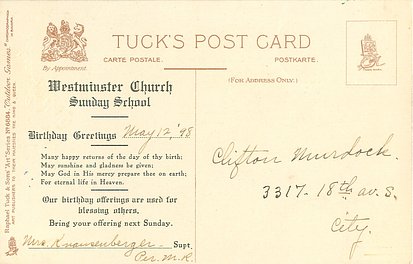 TUCK'S POST CARD
CARTE POSTALE.
POSTKARTE.
By Appointment.
(FOR ADDRESS ONLY.)
Westminster Church
Sunday School
Birthday Greetings May 12, '98
Many happy returns of the day of thy birth;
May sunshine and gladness be given;
May God in His mercy prepare thee on earth;
For eternal life in Heaven.
Our birthday offerings are used for
blessing others.
Bring your offering next Sunday.
Mrs. Knausenberger Supt.
Per. M. R.
Clifton Murdock.
3317-18th av. S.
City.
Raphael Tuck & Sons' "Art" Series No 6804 "Golden Games"
ART PUBLISHERS TO THEIR MAJESTIES THE KING & QUEEN.